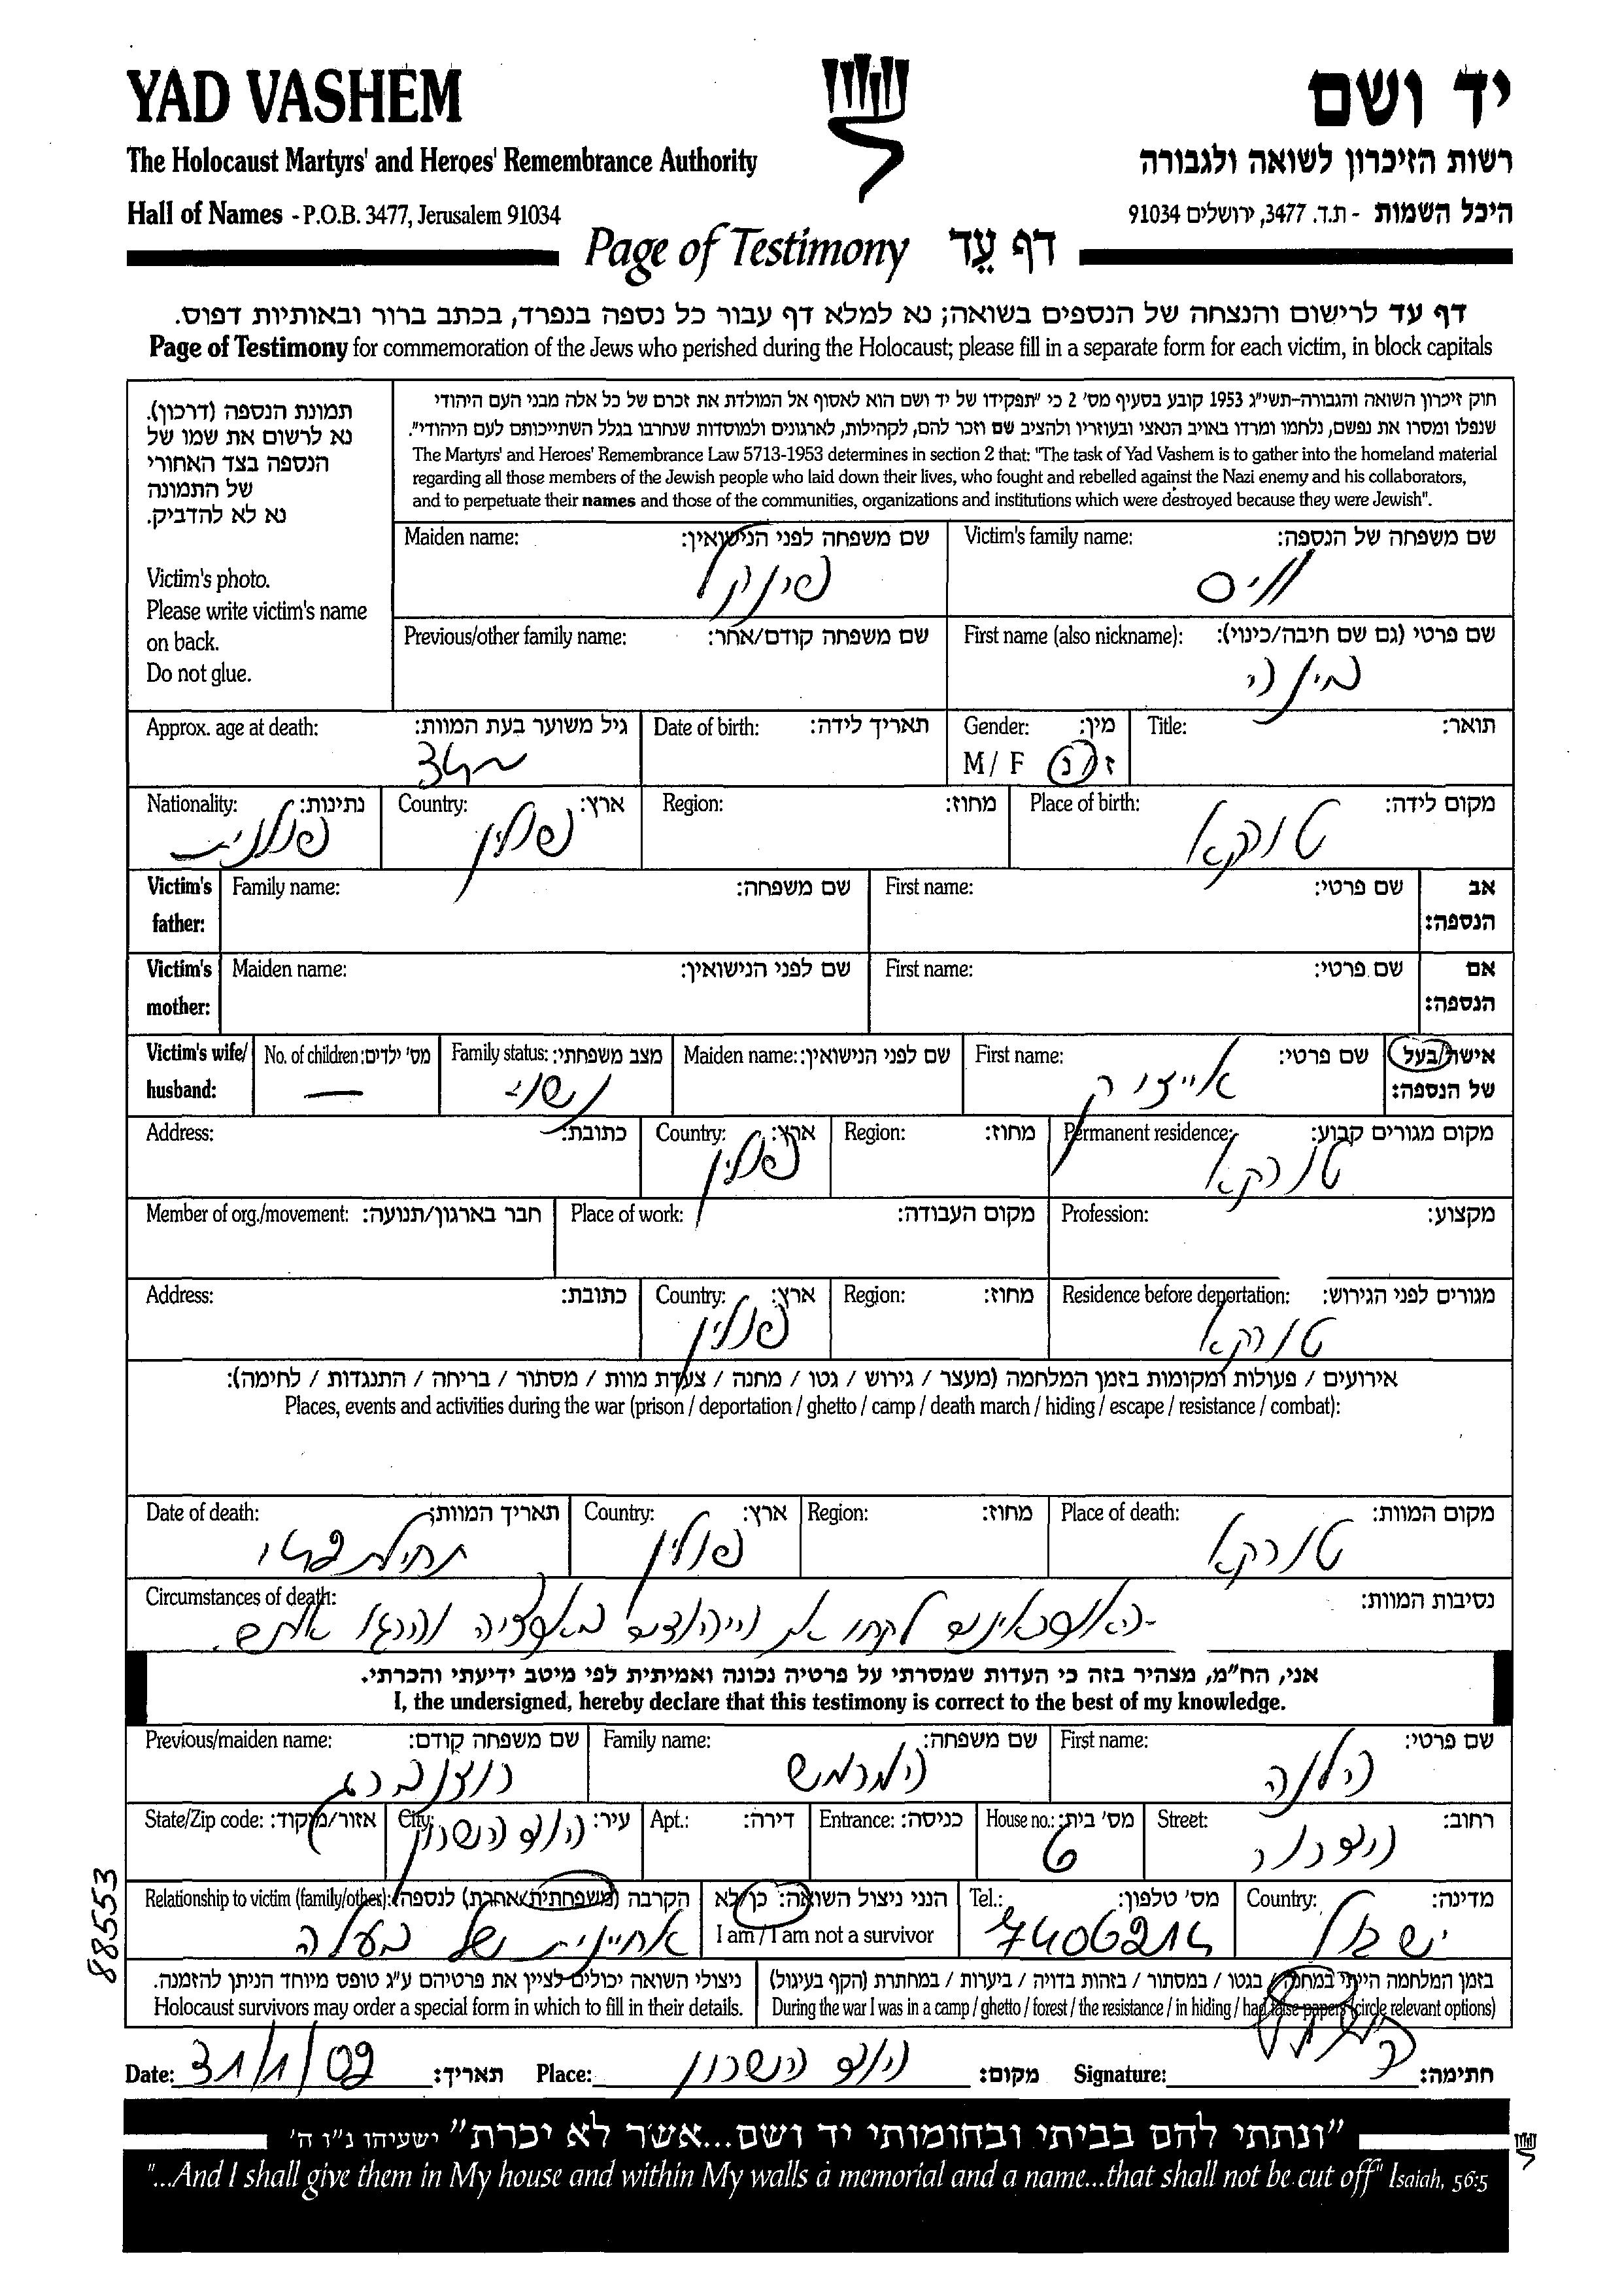 YAD VASHEM
יד ושם
The Holocaust Martyrs' and Heroes' Remembrance Authority
רשות הזיכרון לשואה ולגבורה
Hall of Names - P.O.B. 3477, Jerusalem 91034
היכל השמות - ת.ד. 3477, ירושלים 91034
Page of Testimony דף עֵד
דף עד לרישום והנצחה של הנספים בשואה; נא למלא דף עבור כל נספה בנפרד, בכתב ברור ובאותיות דפוס.
Page of Testimony for commemoration of the Jews who perished during the Holocaust; please fill in a separate form for each victim, in block capitals
תמונת הנספה (דרכון).
נא לרשום את שמו של
הנספה בצד האחורי
של התמונה
נא לא להדביק.
Victim's photo.
Please write victim's name
on back.
Do not glue.
חוק זיכרון השואה והגבורה-תשי"ג 1953 קובע בסעיף מס' 2 כי "תפקידו של יד ושם הוא לאסוף אל המולדת את זכרם של כל אלה מבני העם היהודי
שנפלו ומסרו את נפשם, נלחמו ומרדו באויב הנאצי ובעוזריו ולהציב שם וזכר להם, לקהילות, לארגונים ולמוסדות שנחרבו בגלל השתייכותם לעם היהודי".
The Martyrs' and Heroes' Remembrance Law 5713-1953 determines in section 2 that: "The task of Yad Vashem is to gather into the homeland material
regarding all those members of the Jewish people who laid down their lives, who fought and rebelled against the Nazi enemy and his collaborators,
and to perpetuate their names and those of the communities, organizations and institutions which were destroyed because they were Jewish".
Victim's family name: שם משפחה של הנספה:
Maiden name: שם משפחה לפני הנישואין:
First name (also nickname): שם פרטי (גם שם חיבה/כינוי):
Previous/other family name: שם משפחה קודם/אחר:
Title: תואר:
Gender: מין:
M / F ז / נ
Date of birth: תאריך לידה:
Approx. age at death: גיל משוער בעת המוות:
Place of birth: מקום לידה:
טורקא
Region: מחוז:
Country: ארץ:
פולין
Nationality: נתינות:
פולנית
Victim's father: אב הנספה:
First name: שם פרטי:
Family name: שם משפחה:
Victim's mother: אם הנספה:
First name: שם פרטי:
Maiden name: שם לפני הנישואין:
Victim's wife/husband: אישה/בעל של הנספה:
First name: שם פרטי:
אייזיק
Maiden name: שם לפני הנישואין:
Family status: מצב משפחתי:
נשוי
No. of children: מס' ילדים:
—
Permanent residence: מקום מגורים קבוע:
טורקא
Region: מחוז:
Country: ארץ:
פולין
Address: כתובת:
Profession: מקצוע:
Place of work: מקום העבודה:
Member of org./movement: חבר בארגון/תנועה:
Residence before deportation: מגורים לפני הגירוש:
טורקא
Region: מחוז:
Country: ארץ:
פולין
Address: כתובת:
אירועים / פעולות ומקומות בזמן המלחמה (מעצר / גירוש / גטו / מחנה / צעדת מוות / מסתור / בריחה / התנגדות / לחימה):
Places, events and activities during the war (prison / deportation / ghetto / camp / death march / hiding / escape / resistance / combat):
Place of death: מקום המוות:
טורקא
Region: מחוז:
Country: ארץ:
פולין
Date of death: תאריך המוות:
תחילת
Circumstances of death: נסיבות המוות:
האוקראינים לקחו את היהודים באקציה והרגו אותם.
אני, הח"מ, מצהיר בזה כי העדות שמסרתי על פרטיה נכונה ואמיתית לפי מיטב ידיעתי והכרתי.
I, the undersigned, hereby declare that this testimony is correct to the best of my knowledge.
First name: שם פרטי:
הלנה
Family name: שם משפחה:
המרמש
Previous/maiden name: שם משפחה קודם:
רוזנברג
Street: רחוב:
House no.: מס' בית:
6
Entrance: כניסה:
Apt.: דירה:
City: עיר:
הוד השרון
State/Zip code: אזור/מיקוד:
Country: מדינה:
ישראל
Tel.: מס' טלפון:
7406214
הנני ניצול השואה: כן/לא
I am / I am not a survivor
Relationship to victim (family/other): הקרבה (משפחתית/אחרת) לנספה:
אחיינית של בעלה
בזמן המלחמה הייתי במחנה / בגטו / במסתור / בזהות בדויה / ביערות / במחתרת (הקף בעיגול)
During the war I was in a camp / ghetto / forest / the resistance / in hiding / had false papers (circle relevant options)
ניצולי השואה יכולים לציין את פרטיהם ע"ג טופס מיוחד הניתן להזמנה.
Holocaust survivors may order a special form in which to fill in their details.
Date: 31/1/09 תאריך:
Place: הוד השרון מקום:
Signature: חתימה:
88553
"ונתתי להם בביתי ובחומותי יד ושם...אשר לא יכרת" ישעיהו נ"ו ה'
"...And I shall give them in My house and within My walls a memorial and a name...that shall not be cut off" Isaiah, 56:5